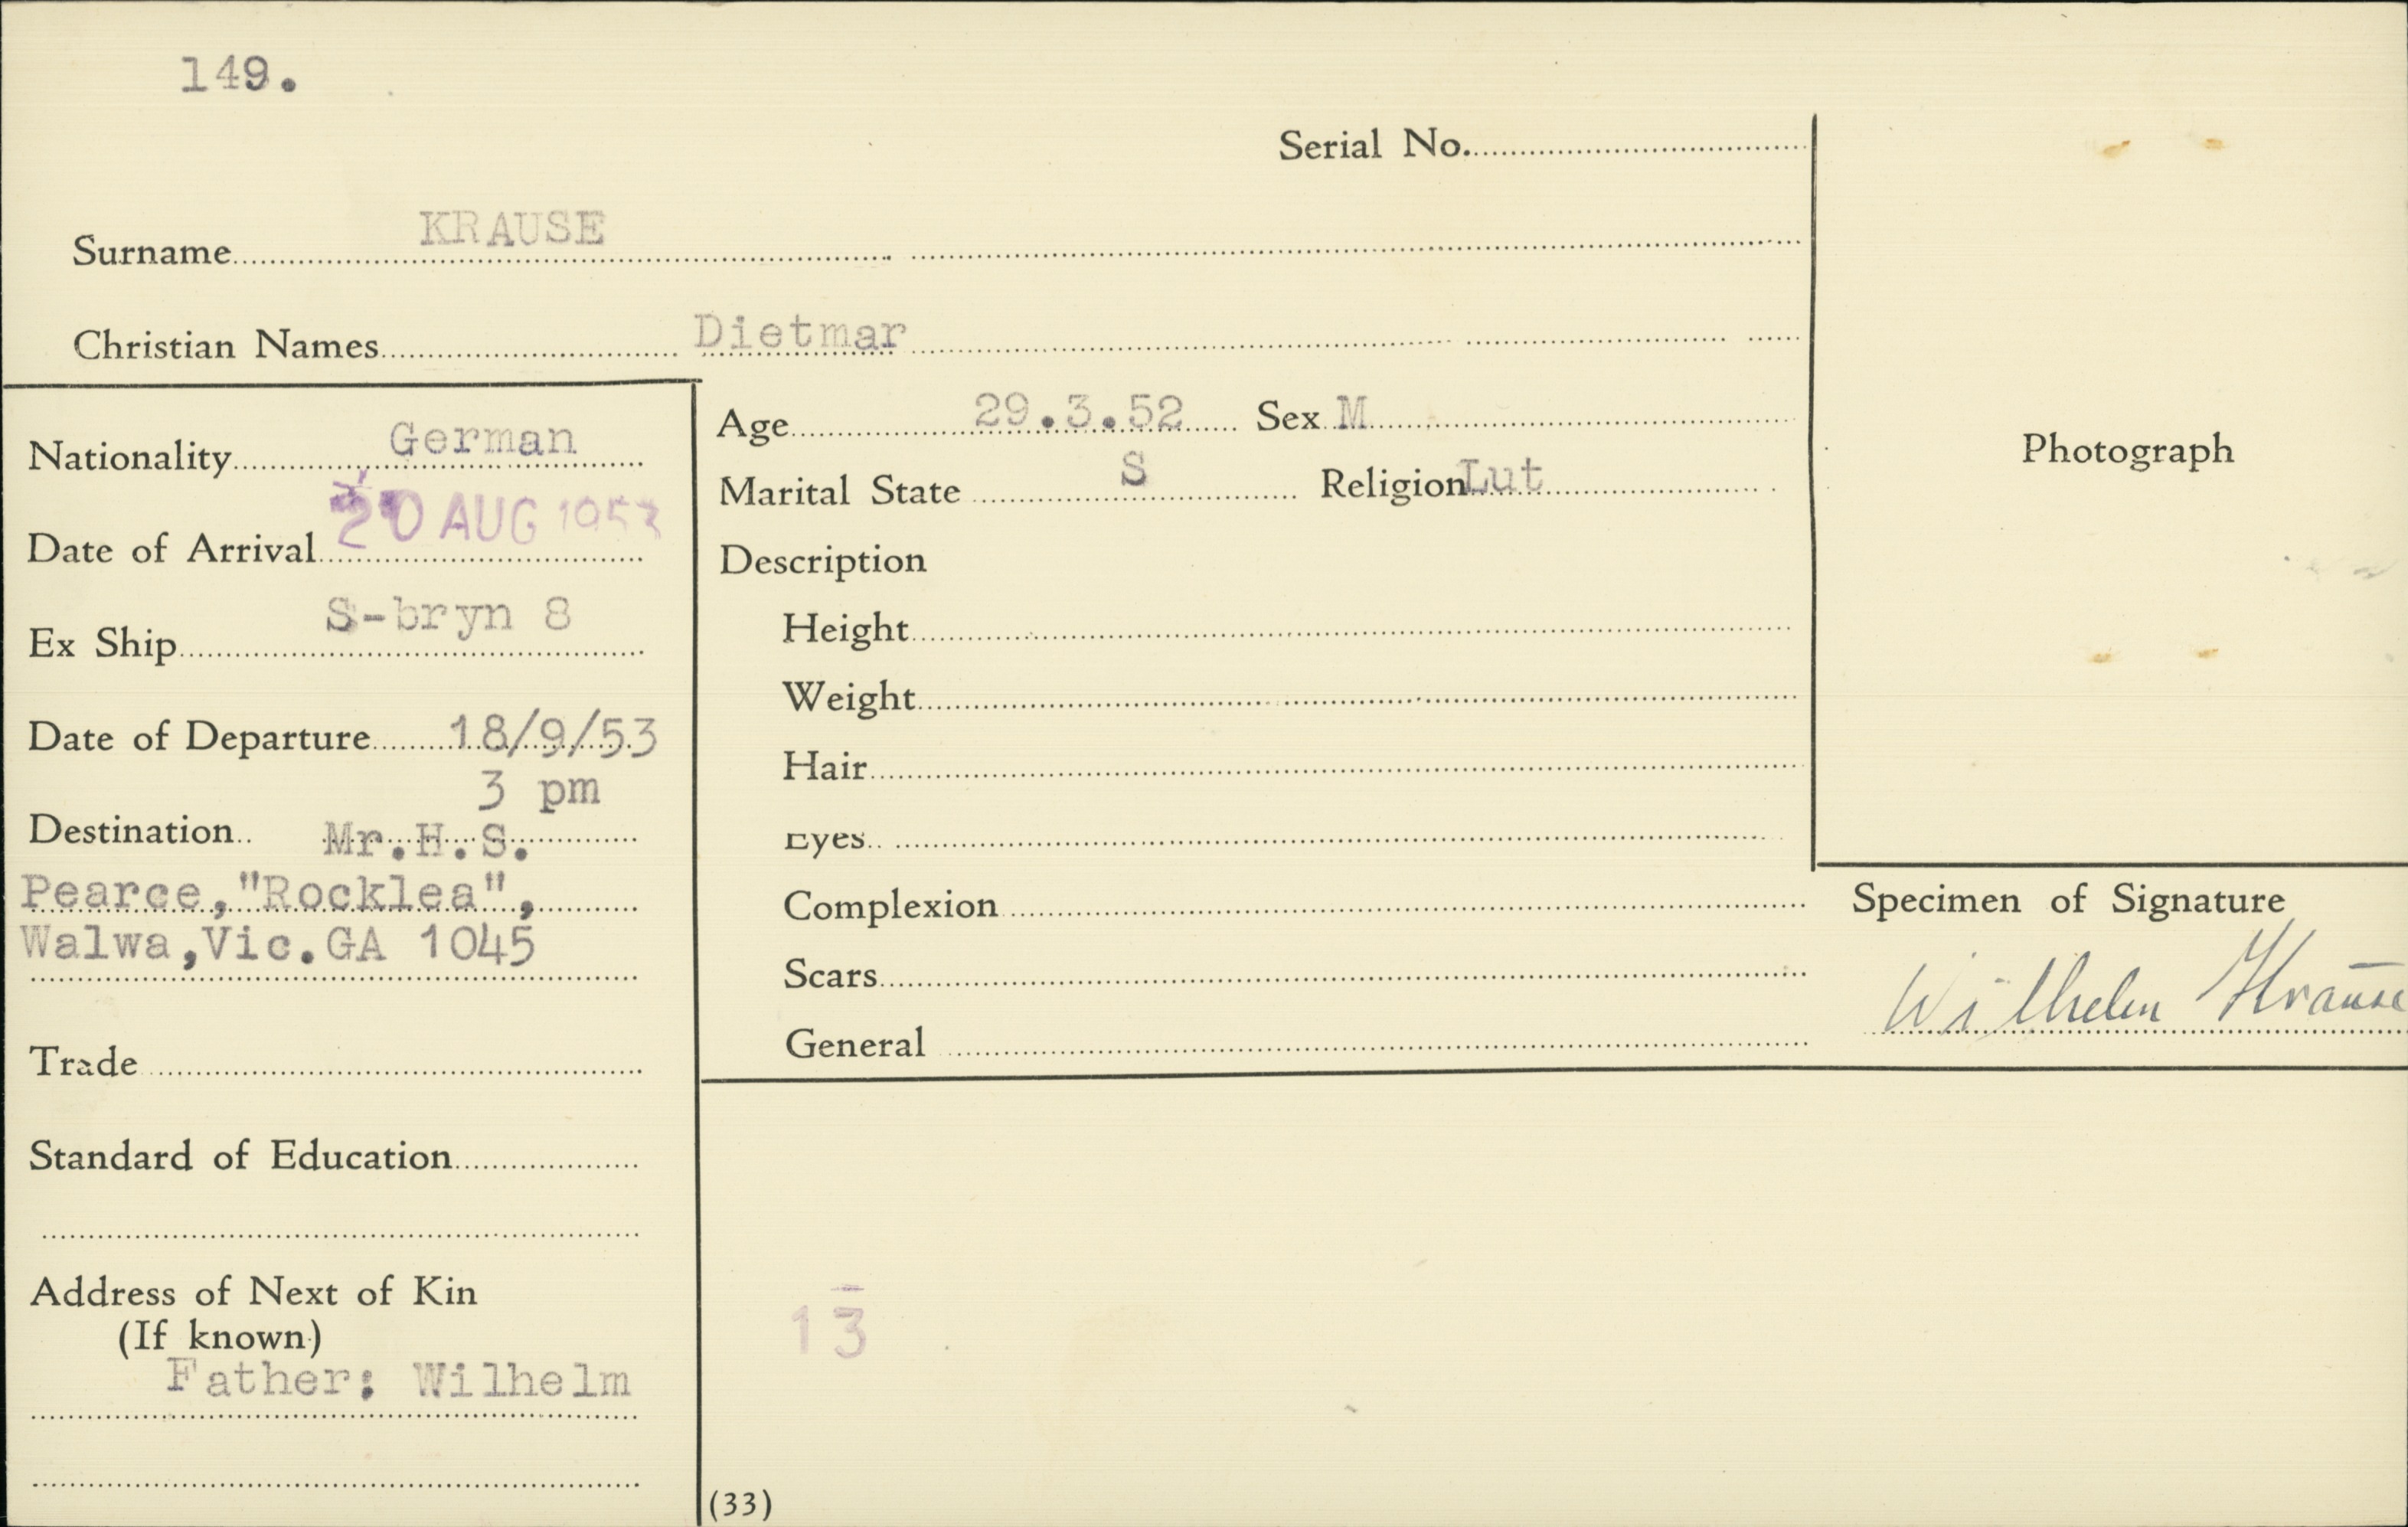 149.
Serial No.
Surname KRAUSE
Christian Names Dietmar
Nationality German
Date of Arrival 20 AUG 1953
Ex Ship S-bryn 8
Date of Departure 18/9/53
3 pm
Destination Mr.H.S.
Pearce,"Rocklea",
Walwa,Vic.GA 1045
Trade
Standard of Education
Address of Next of Kin
(If known)
Father: Wilhelm
Age 29.3.52 Sex M
Marital State S Religion Lut
Description
Height
Weight
Hair
Eyes
Complexion
Scars
General
Photograph
Specimen of Signature
Wilhelm Krause
13
(33)